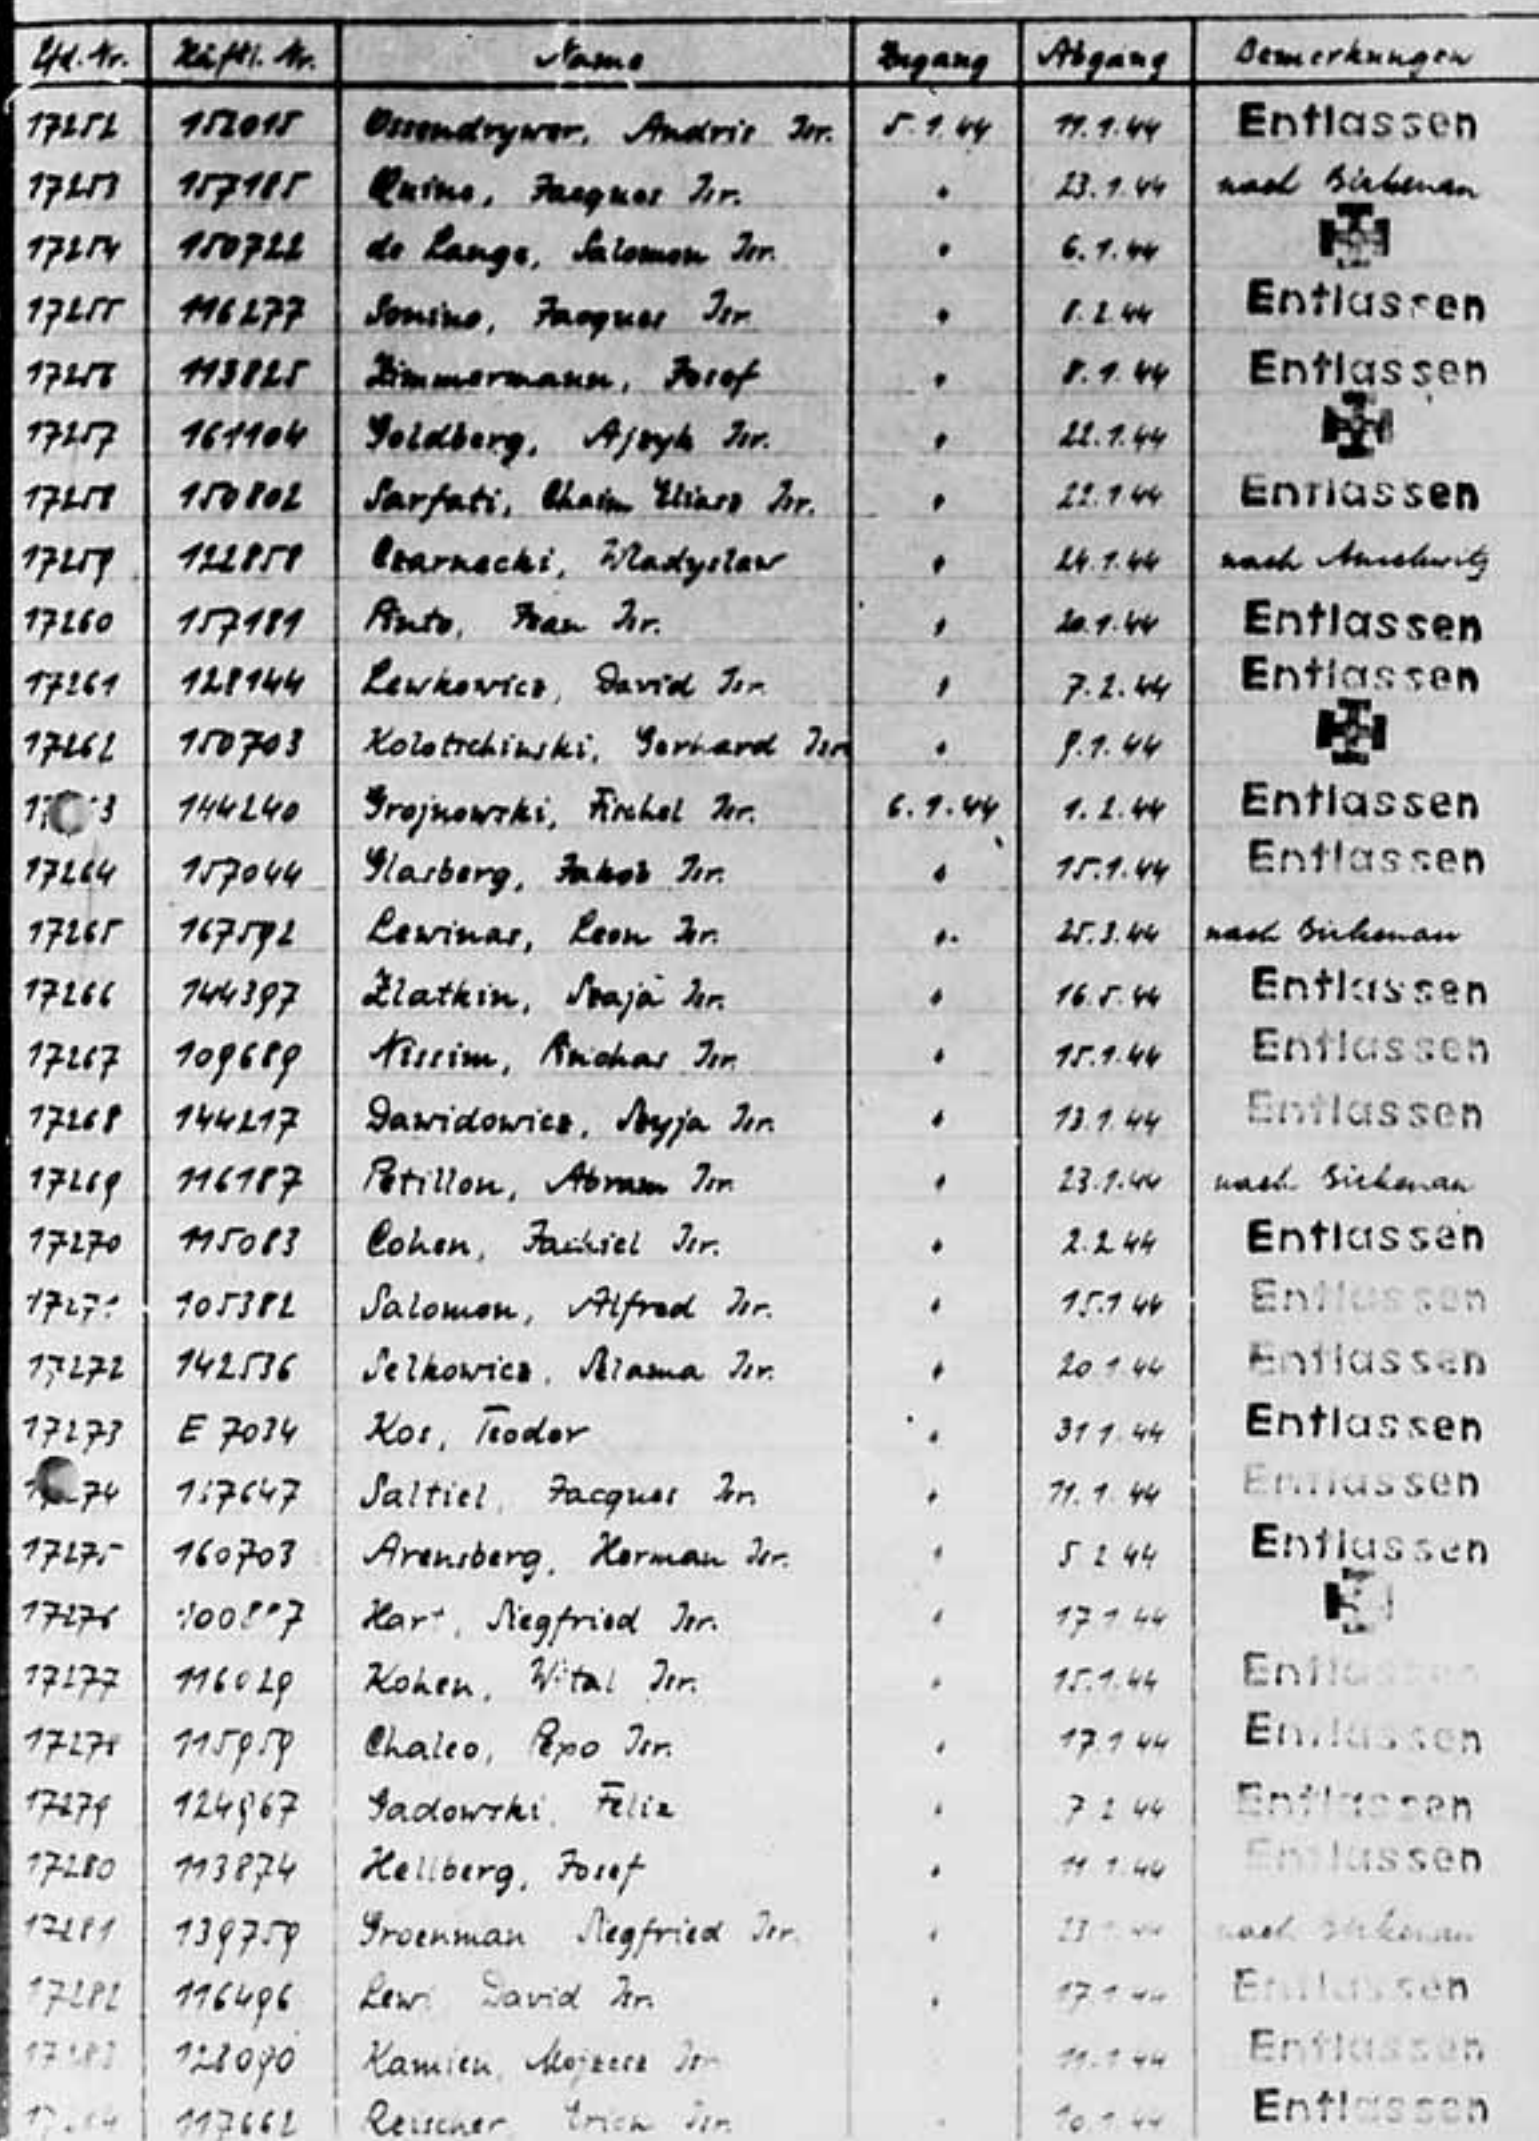 Lfd. Nr. Häftl. Nr. Name Zugang Abgang Bemerkungen
17252 152015 Ossendrywer, Andris Isr. 5.1.44 11.1.44 Entlassen
17253 157185 Quino, Jacques Isr. " 23.1.44 nach Birkenau
17254 150722 de Lange, Salomon Isr. " 6.1.44
17255 116277 Sonino, Jacques Isr. " 8.2.44 Entlassen
17256 113825 Zimmermann, Josef " 8.1.44 Entlassen
17257 161104 Goldberg, Ajzyk Isr. " 22.1.44
17258 150802 Sarfati, Chaim Eliasz Isr. " 22.1.44 Entlassen
17259 122858 Czarnecki, Wladyslaw " 24.1.44 nach Auschwitz
17260 157181 Pinto, Jean Isr. " 20.1.44 Entlassen
17261 128144 Lewkowicz, David Isr. " 7.2.44 Entlassen
17262 150703 Kolotschinski, Gerhard Isr " 9.1.44
144240 Grojnowski, Fischel Isr. 6.1.44 1.2.44 Entlassen
17264 157044 Glasberg, Jakob Isr. " 15.1.44 Entlassen
17265 167592 Lewinas, Leon Isr. " 25.3.44 nach Birkenau
17266 144397 Zlatkin, Szaja Isr. " 16.5.44 Entlassen
17267 109689 Nissim, Pinchas Isr. " 15.1.44 Entlassen
17268 144217 Dawidowicz, Szyja Isr. " 13.1.44 Entlassen
17269 116187 Petillon, Abram Isr. " 23.1.44 nach Birkenau
17270 115083 Cohen, Jachiel Isr. " 2.2.44 Entlassen
17271 105382 Salomon, Alfred Isr. " 15.1.44 Entlassen
17272 142536 Selkowicz, Szlama Isr. " 20.1.44 Entlassen
17273 E 7034 Kos, Teodor " 31.1.44 Entlassen
Saltiel, Jacques Isr. " 11.1.44 Entlassen
17275 160703 Arensberg, Herman Isr. " 5.2.44 Entlassen
17276 Hart, Siegfried Isr. " 17.1.44
17277 116029 Kohen, Wital Isr. " 15.1.44 Entlassen
17278 115959 Chaleo, Pepo Isr. " 17.1.44 Entlassen
17279 124967 Sadowski, Felix " 7.2.44 Entlassen
17280 113874 Hellberg, Josef " 11.1.44 Entlassen
17281 139759 Groenman Siegfried Isr. " nach Birkenau
17282 116496 Lewi David Isr. " 17.1.44 Entlassen
128090 Kamien, Mojzesz Isr 11.1.44 Entlassen
117662 Reischer Erich Isr. 10.1.44 Entlassen